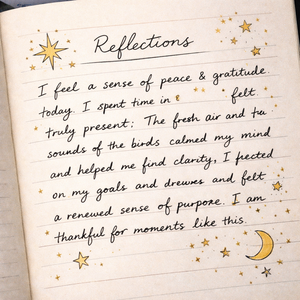 Reflections
I feel a sense of peace & gratitude
today. I spent time in felt
truly present; The fresh air and
sounds of the birds calmed my mind
and helped me find clarity, I
on my goals and and felt
a renewed sense of purpose. I am
thankful for moments like this.